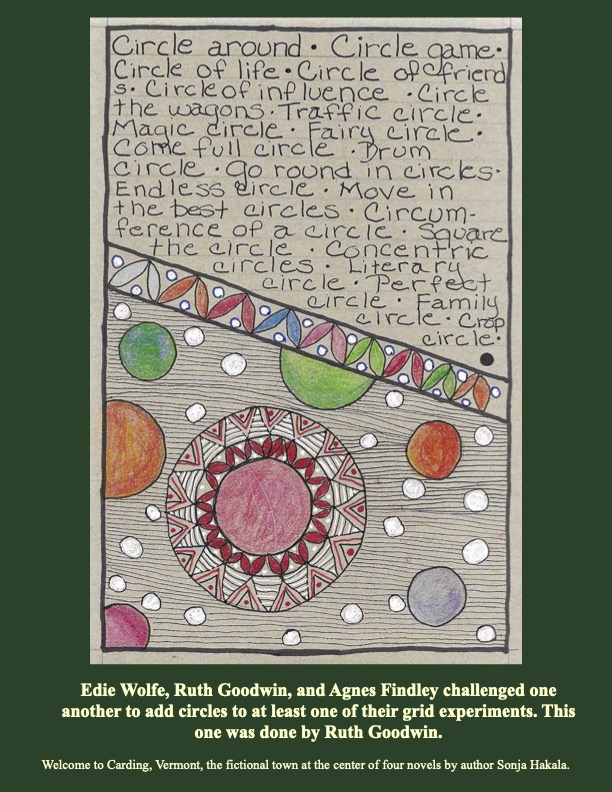 Circle around · Circle game ·
Circle of life · Circle of friend
s · Circle of influence · Circle
the wagons · Traffic circle ·
Magic circle · Fairy circle ·
Come full circle · Drum
circle · Go round in circles ·
Endless circle · Move in
the best circles · Circum-
ference of a circle · Square
the circle · Concentric
circles · Literary
circle · Perfect
circle · Family
circle · Crop
circle ·
Edie Wolfe, Ruth Goodwin, and Agnes Findley challenged one
another to add circles to at least one of their grid experiments. This
one was done by Ruth Goodwin.
Welcome to Carding, Vermont, the fictional town at the center of four novels by author Sonja Hakala.